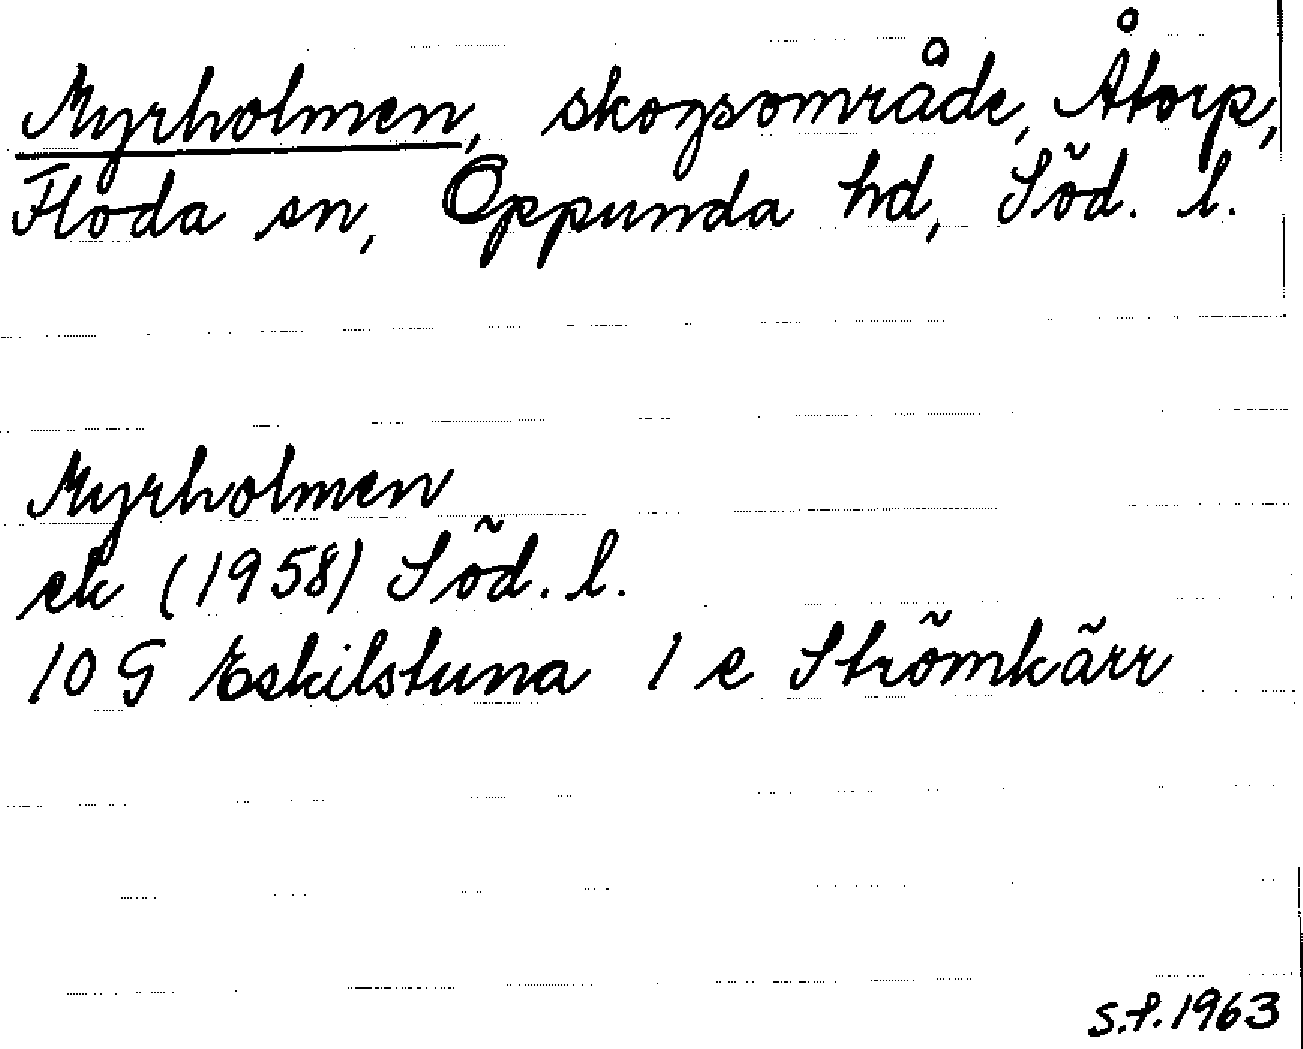 Myrholmen, skogsområde, Åtorp,
Floda sn, Oppunda hd, Söd. l.
Myrholmen
ek (1958) Söd. l.
10 G Eskilstuna 1 e Strömkärr
S.f. 1963